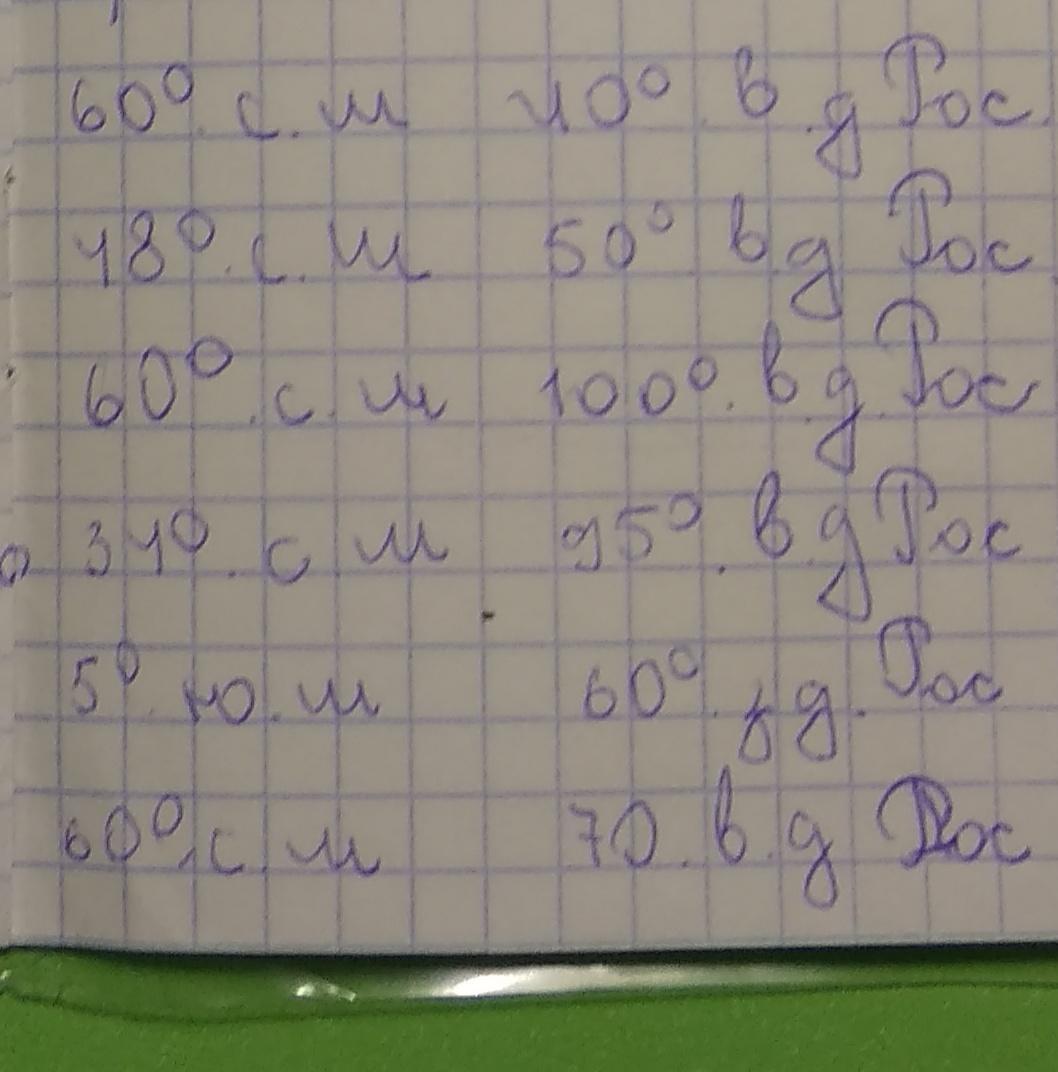 60° с. ш 40° в д Рос.
48° с. ш 50° в д Рос
60° с. ш 100° в д. Рос
34° с ш 95° в д Рос
5° ю. ш 60° з д. Рос
60° с ш 70. в д Рос